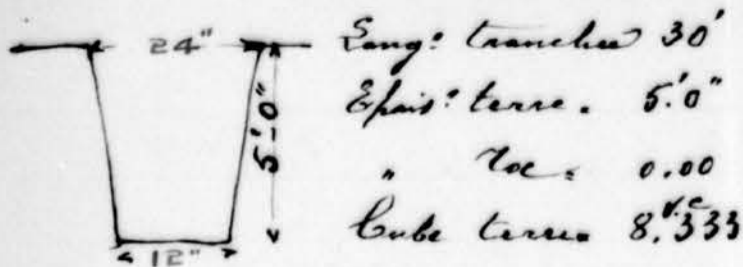 24"
5'-0"
12"
Long: tranchee 30'
Epais: terre. 5'.0"
" Roc = 0.00
Cube terre = 8.333 v.c